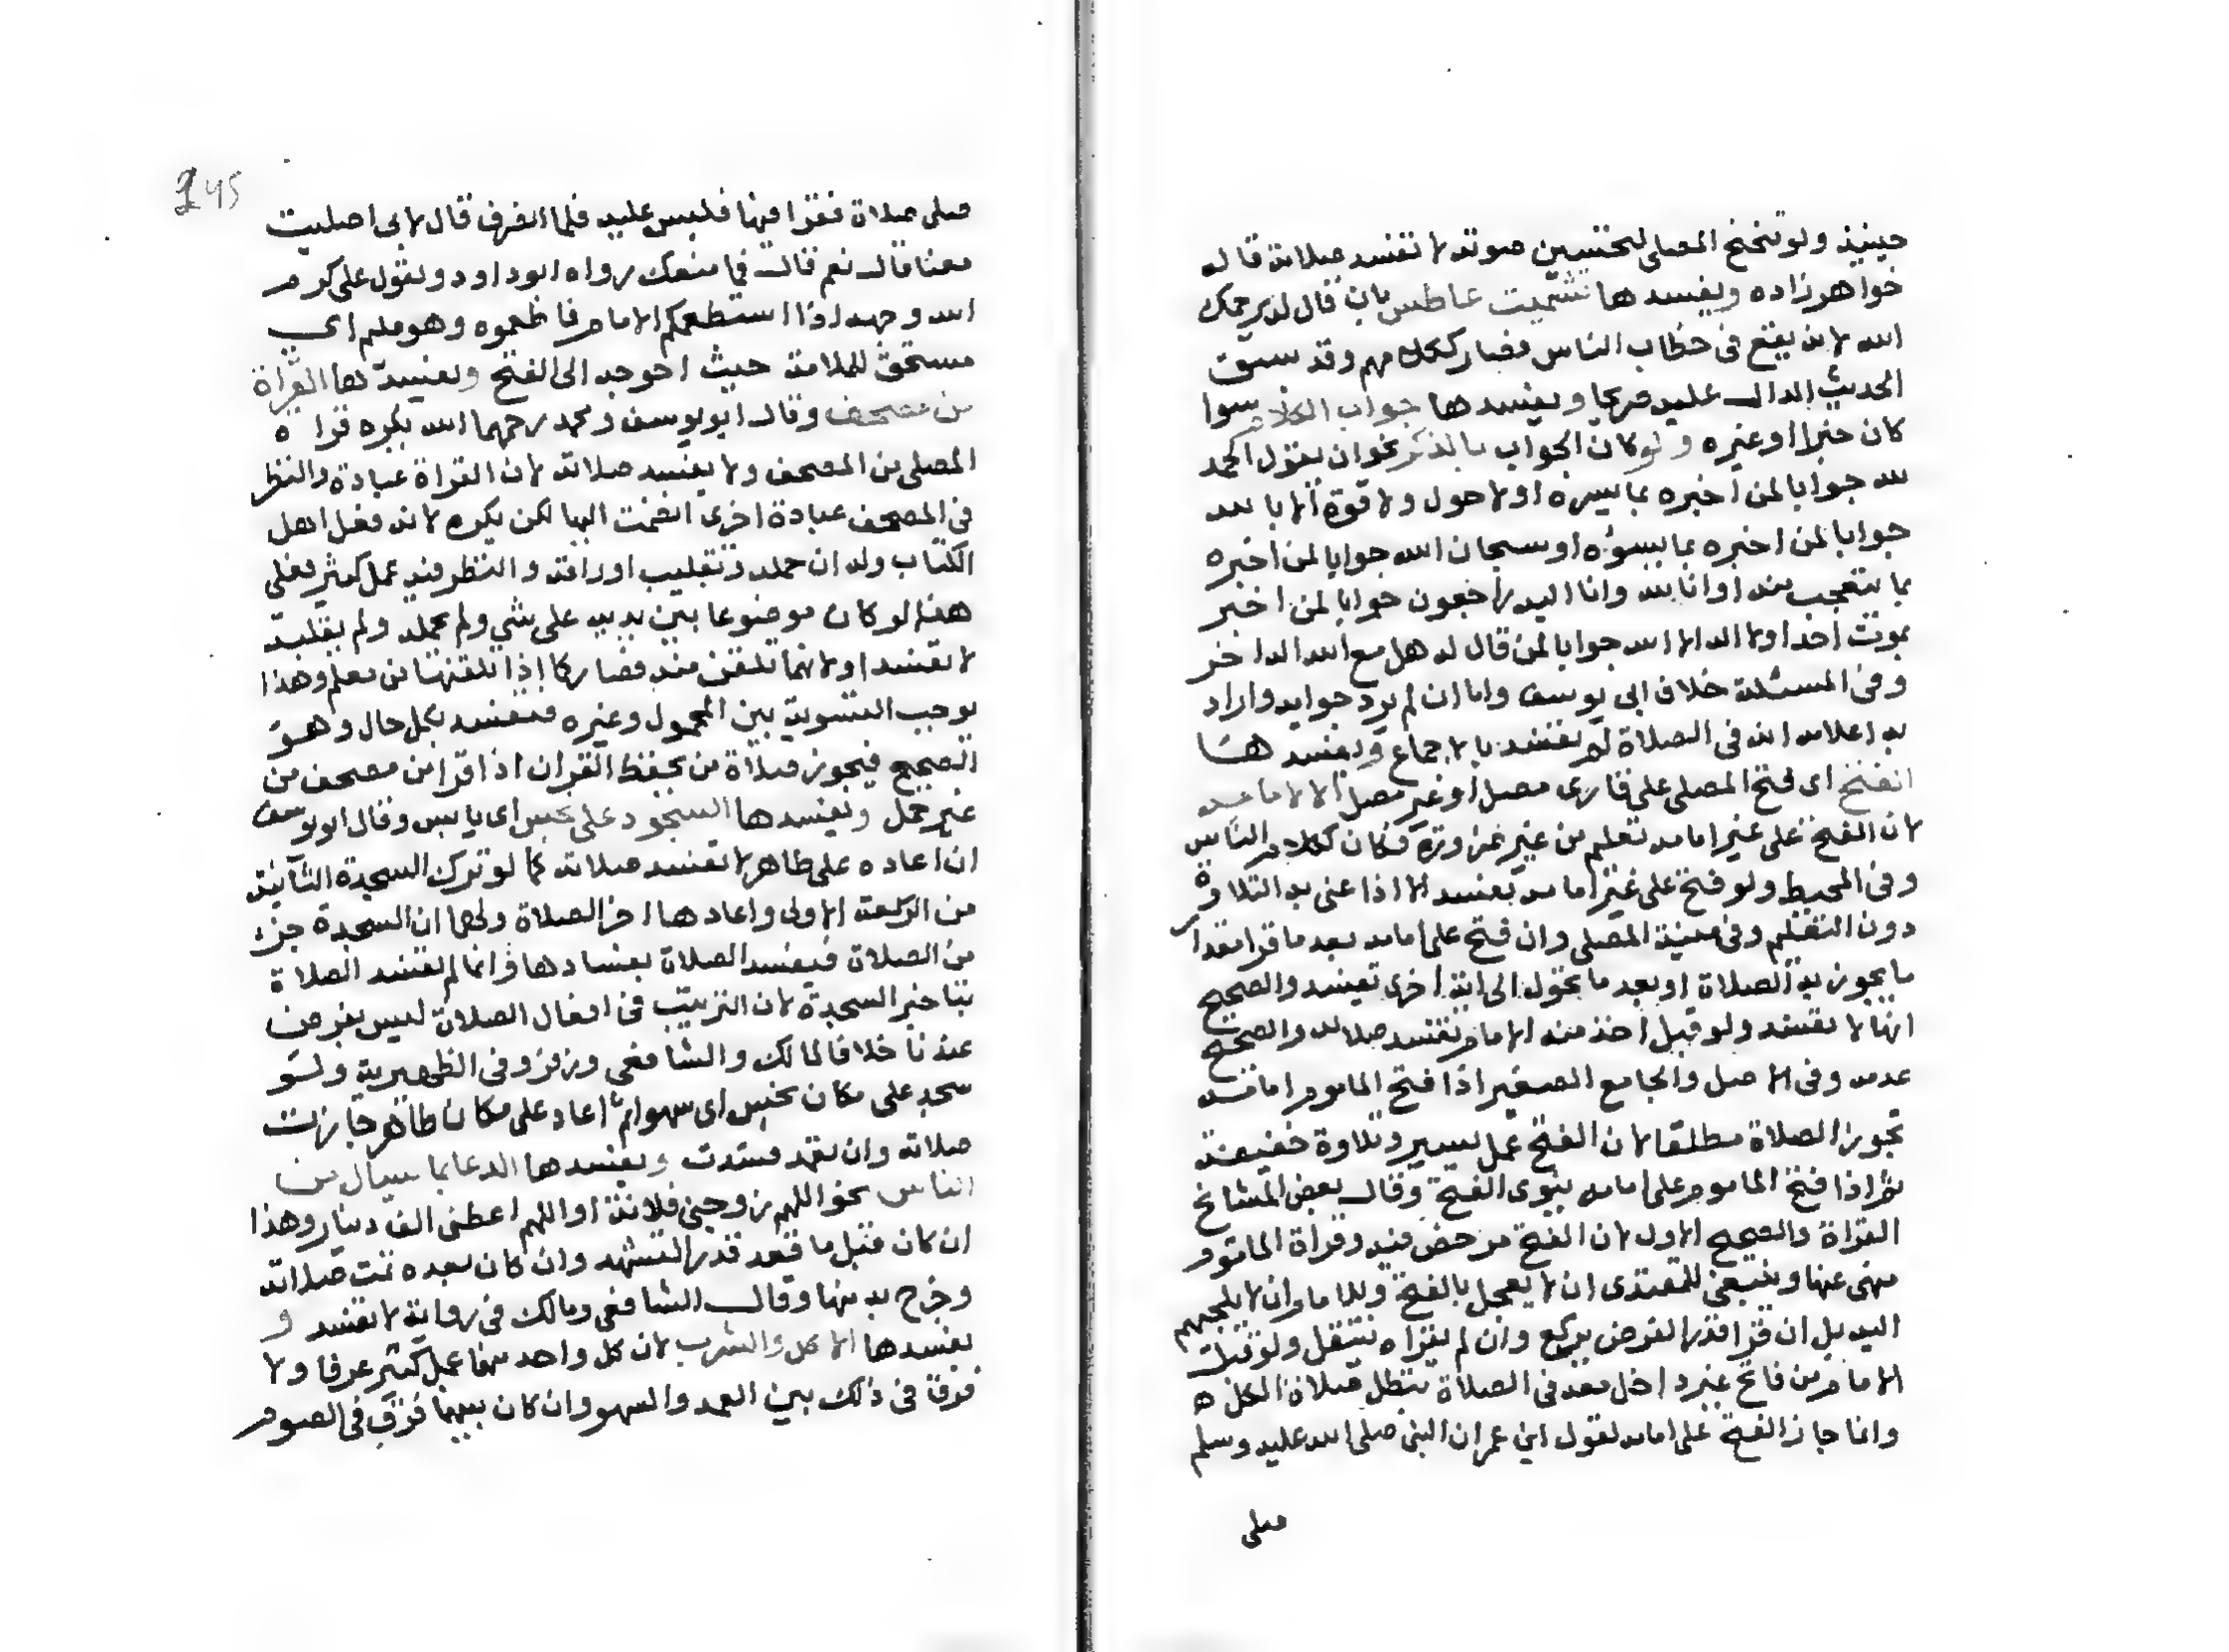 حينيذ ولو تنحنح المصلى لتحسين صوته لا تفسد صلاته قاله
خواهر زاده ويفسدها تشميت عاطس بان قال له يرحمك
الله لانه يقع فى خطاب الناس فصار ككلامهم وقد سبق
الحديث الدال عليه صريحا ويفسدها جواب الكلام سوا
كان خبرا او غيره ولو كان الجواب بالذكر نحو ان يقول الحمد
لله جوابا لمن اخبره بما يسره او لا حول ولا قوة الا بالله
جوابا لمن اخبره بما يسؤه او سبحان الله جوابا لمن اخبره
بما يتعجب منه او انا لله وانا اليه راجعون جوابا لمن اخبر
بموت احد او لا اله الا الله جوابا لمن قال له هل مع الله اله اخر
وفى المسئلة خلاف ابى يوسف واما ان لم يرد جوابه واراد
به اعلامه انه فى الصلاة لم تفسد بالاجماع ويفسدها
الفتح اى فتح المصلى على قارى مصل او غير مصل الا لامامه
لان الفتح على غير امامه تعلم من غير ضرورة فكان ككلام الناس
وفى المحيط ولو فتح على غير امامه تفسد الا اذا عنى به التلاوة
دون التعليم وفى منية المصلى وان فتح على امامه بعد ما قرا مقدار
ما يجوز به الصلاة او بعد ما تحول الى اية اخرى تفسد والصحيح
انها لا تفسد ولو قيل اخذ منه الامام تفسد صلاته والصحيح
عدمه وفى الاصل والجامع الصغير اذا فتح الماموم امامه
تجوز الصلاة مطلقا لان الفتح عمل يسير وتلاوة حقيقة
ثم اذا فتح الماموم على امامه ينوى الفتح وقال بعض المشايخ
القراة والصحيح الاول لان الفتح مرخص فيه وقراة الماموم
منهى عنها وينبغى للمقتدى ان لا يعجل بالفتح وللامام ان لا يلجيهم
اليه بل ان قرا قدر الفرض يركع وان لم يقراه ينتقل ولو قبل
الامام من فاتح غير داخل معه فى الصلاة تبطل صلاة الكل ه
وانما جاز الفتح على امامه لقول ابن عمر ان النبى صلى الله عليه وسلم
صلى
145
صلى صلاة فقرا فيها فلبس عليه فلما انصرف قال لابى اصليت
معنا قال نعم قال فما منعك رواه ابو داود ولقول على كرم
الله وجهه اذا استطعمكم الامام فاطعموه وهو مليم اى
مستحق للملامة حيث احوجه الى الفتح ويفسدها القراة
من مصحف وقال ابو يوسف ومحمد رحمهما الله يكره قراه
المصلى من المصحف ولا يفسد صلاته لان القراة عبادة والنظر
فى المصحف عبادة اخرى انضمت اليها لكن يكره لانه فعل اهل
الكتاب وله ان حمله وتقليب اوراقه والنظر فيه عمل كثير فعلى
هذا لو كان موضوعا بين يديه على شي ولم يحمله ولم يقلبه
لا تفسد او لانها تلقن منه فصار كما اذا تلقنها من معلم وهذا
يوجب التسوية بين المحمول وغيره فتفسد بكل حال وهو
الصحيح فيجوز صلاة من يحفظ القران اذا قرا من مصحف من
غير حمل ويفسدها السجود على نجس اى يابس وقال ابو يوسف
ان اعاده على طاهر لا تفسد صلاته كما لو ترك السجدة الثانية
من الركعة الاولى واعادها اخر الصلاة ولهما ان السجدة جزء
من الصلاة فيفسد الصلاة بفسادها وانما لم تفسد الصلاة
بتاخير السجدة لان الترتيب فى افعال الصلاة ليس بفرض
عندنا خلافا لمالك والشافعى وزفر وفى الظهيرية ولو
سجد على مكان نجس اى سهوا ثم اعاد على مكان طاهر جازت
صلاته وان تعمد فسدت ويفسدها الدعا بما يسال من
الناس نحو اللهم زوجنى فلانة او اللهم اعطنى الف دينار وهذا
ان كان قبل ما قعد قدر التشهد وان كان بعده تمت صلاته
وخرج به منها وقال الشافعى ومالك فى رواية لا تفسد و
يفسدها الاكل والشرب لان كل واحد منهما عمل كثير عرفا ولا
فرق فى ذلك بين العمد والسهو وان كان بينهما فرق فى الصوم